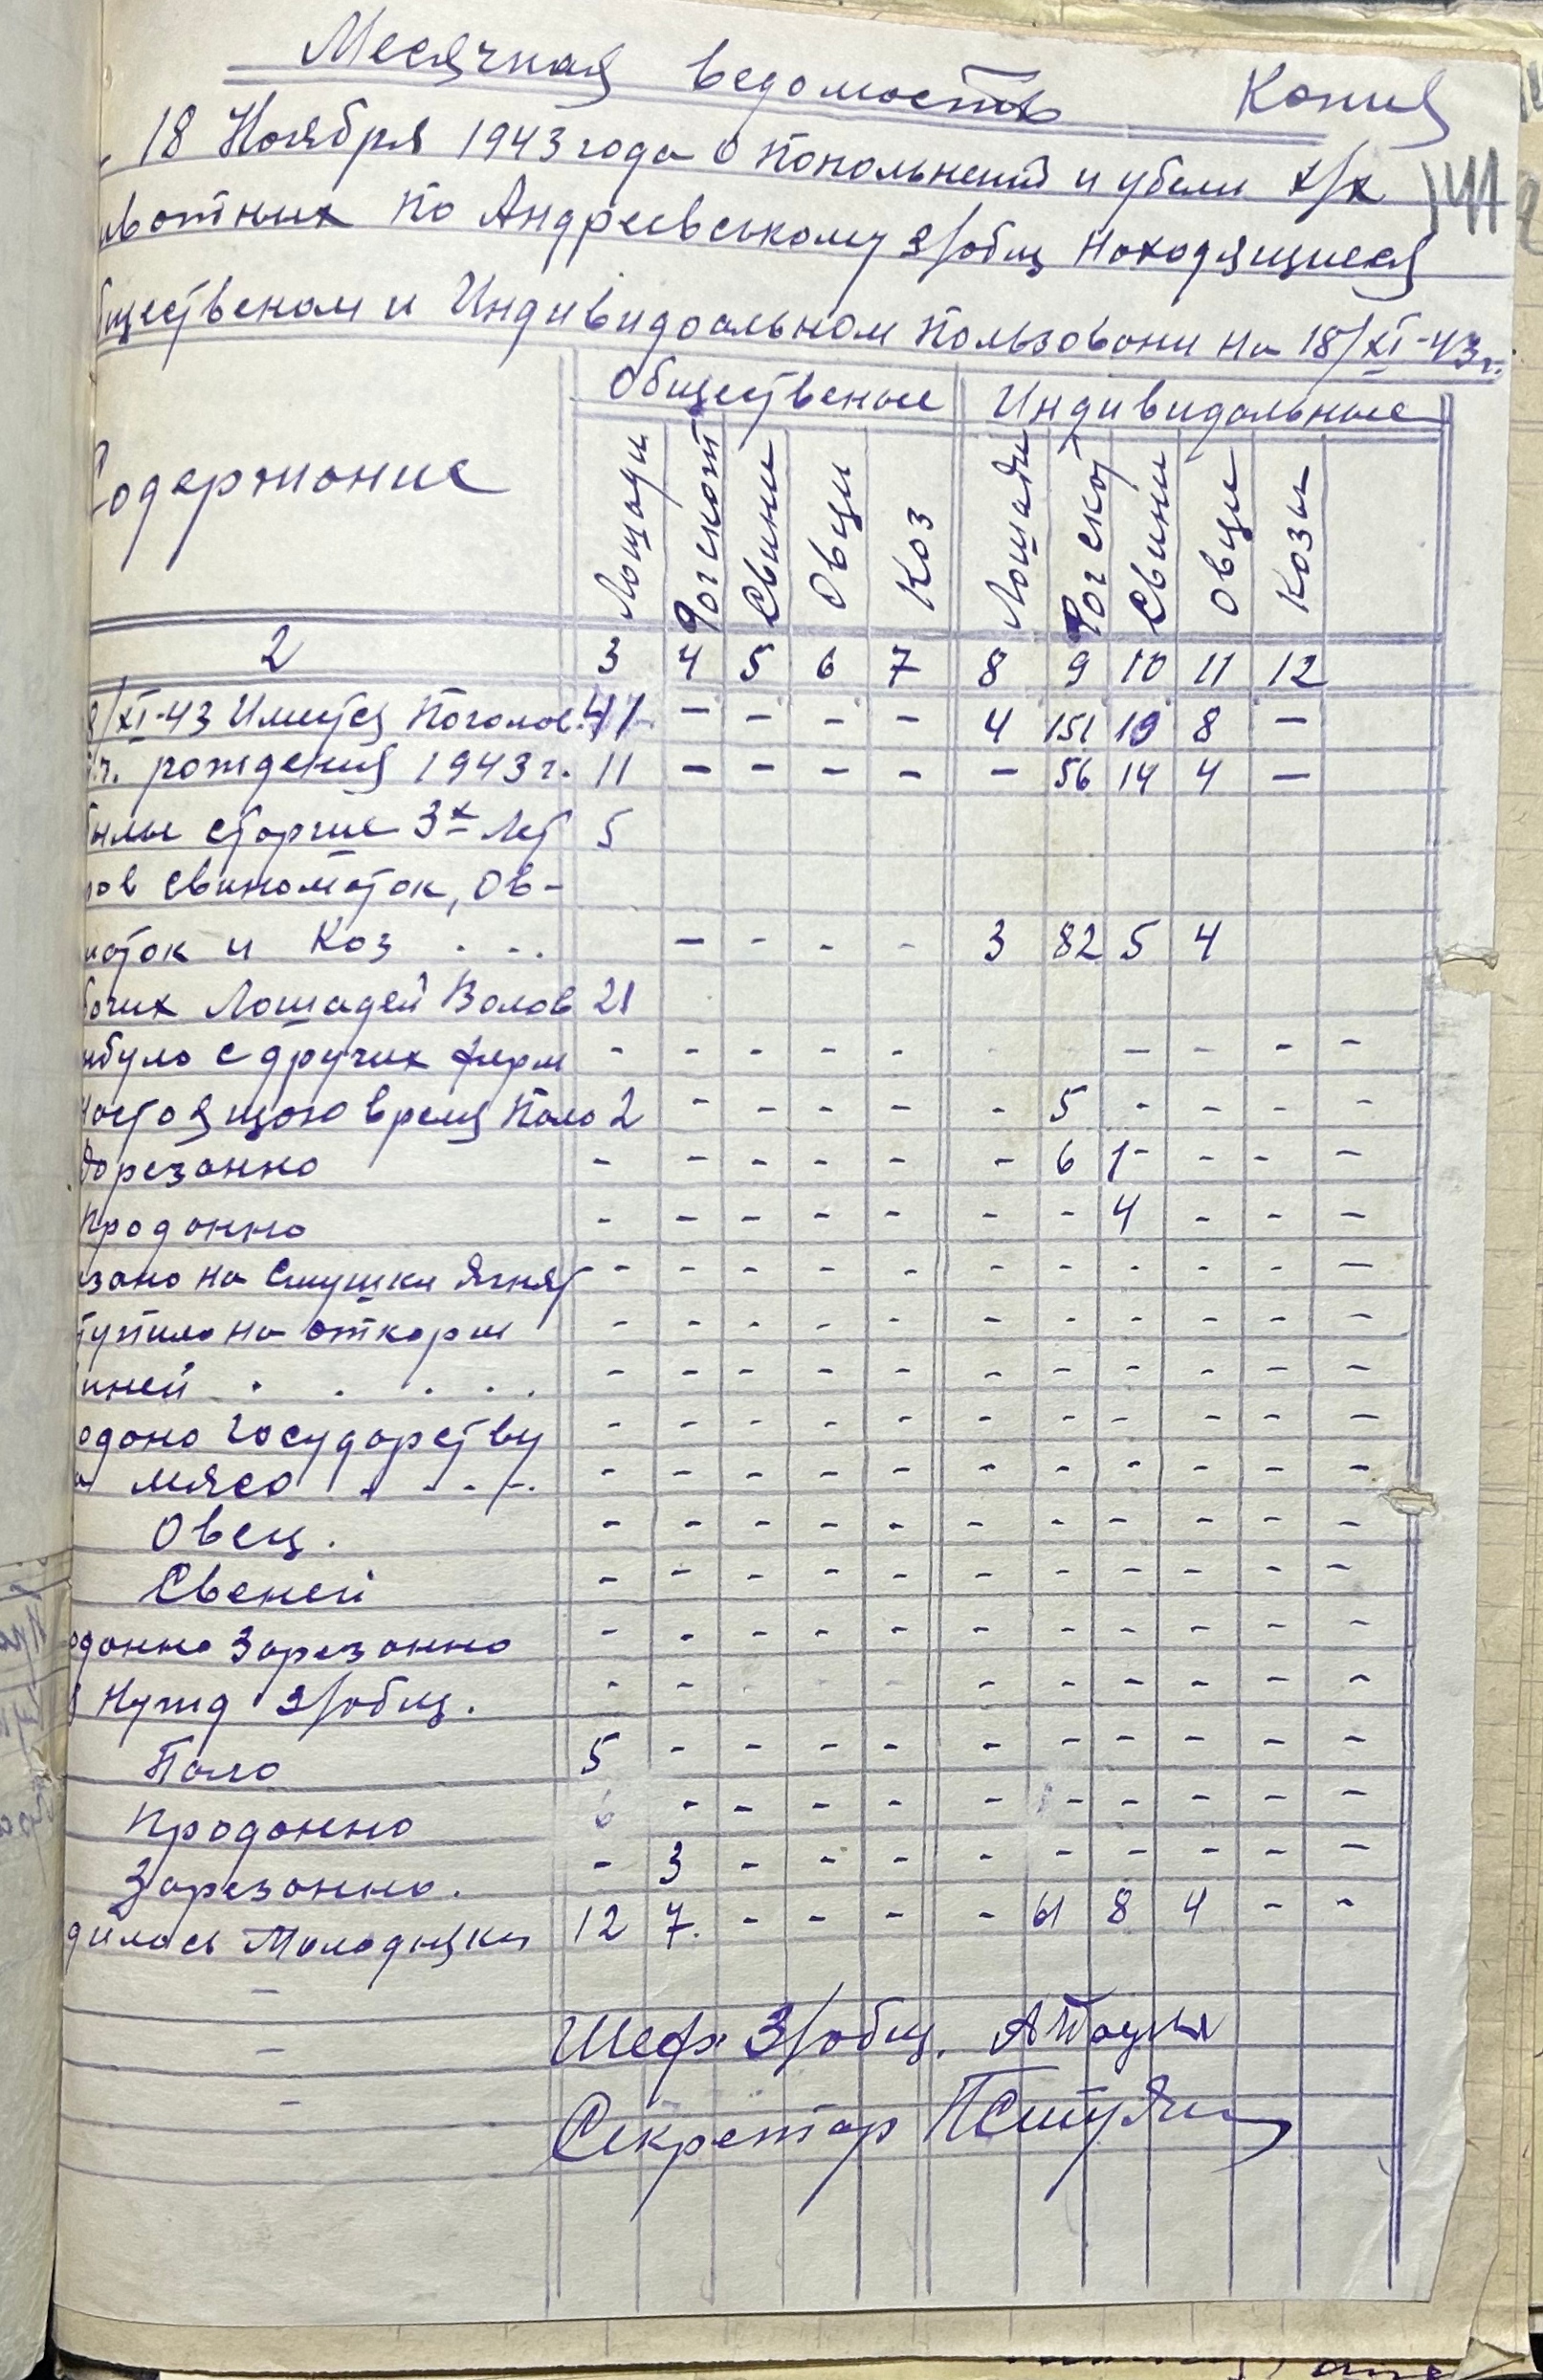 Месячная ведомость Копия
18 Ноября 1943 года О пополнений и убели х/х
ивотных по Андреевському з/общ находящиеся
бщественом и Индивидоальном пользовани на 18/XI-43г.
Содержание Общественые Индивидальные
Лошади Рог скот Свини Овци Коз Лошади Рог скот Свини Овци Козы
2 3 4 5 6 7 8 9 10 11 12
8/XI-43 Имеится Поголов. - - - - 4 151 19 8 -
т.ч. рождения 1943г. 11 - - - - - 56 14 4 -
былы старше 3х лет 5
ров свиноматок, Ов-
маток и Коз . . . - - - - 3 82 5 4
бочих Лошадей Волов 21
ибуло с других ферм - - - - - - - - -
настоящою время Пало 2 - - - - - 5 - - - -
Зарезанно - - - - - - 6 1 - - - -
Проданно - - - - - - - 4 - - -
езано на Смушки Ягнят - - - - - - - - - - -
тупило на откорм - - - - - - - - - - -
иней . . . . . - - - - - - - - - - -
одано Государству - - - - - - - - - - -
мясо . . . . - - - - - - - - - - -
Овец. - - - - - - - - - - -
Свеней - - - - - - - - - - -
оданно Зарезанно - - - - - - - - - - -
Нужд з/общ. - - - - - - - - -
Пало 5 - - - - - - - - - -
Проданно - - - - - - - - - -
Зарезанно. - 3 - - - - - - - - -
дилось Молодняка 12 7. - - - - 61 8 4 - -
-
- Шеф З/общ.
- Секретар